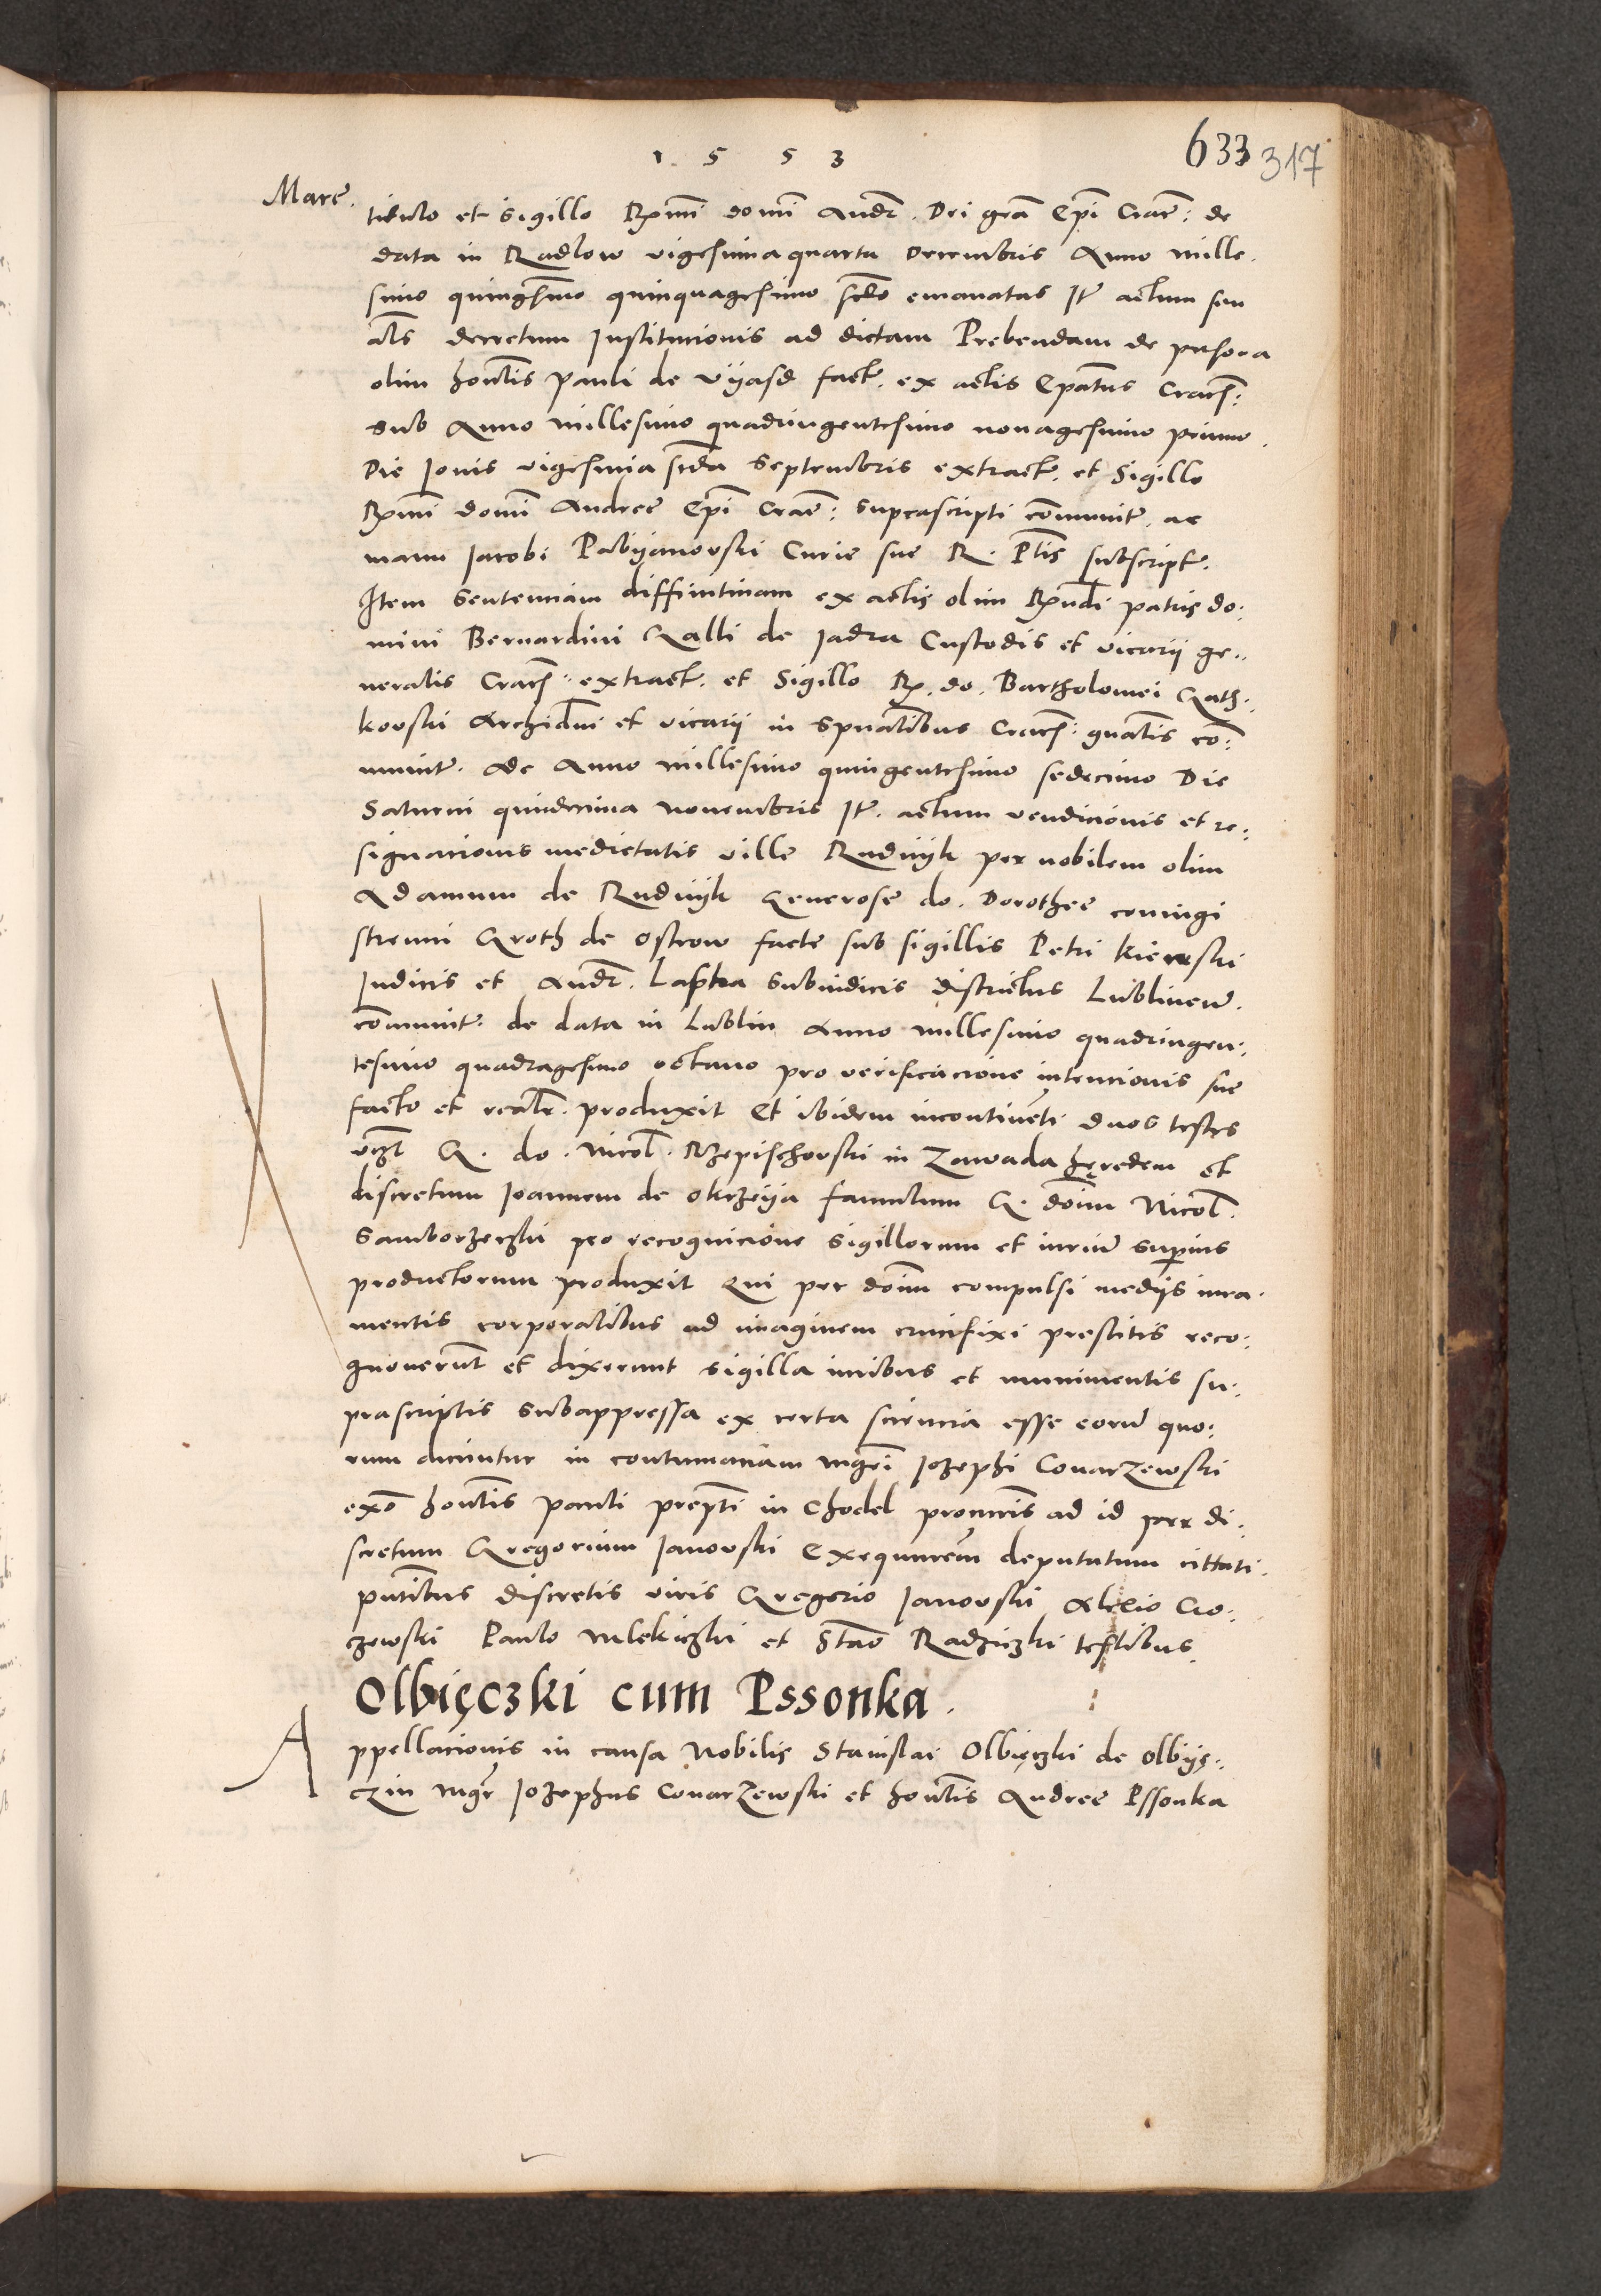 1 5 5 3
633 317
Marc̄.
titulo et sigillo Rx̄mi domī Andr̄. Dei grā Ep̄i Crac̄: de
data in Radlow vigesima quarta Decembris Anno mille.
simo quingēsimo quinquagesimo scdo emanatas It̄ actum seu
al̄s decretum Institucionis ad dictam Prebendam de persona
olim honlis Pauli de Uÿasd fact. ex actis Ep̄atus Cracn̄:
sub Anno millesimo quadringentesimo nonagesimo primo.
Die Jovis vigesima scda Septembris extract. et Sigillo
Rx̄mi domī Andree Ep̄i Crac̄: suprascripti cōmunit. ac
manu Jacobi Pabÿanovski Curie sue R. Ptis subscript.
Item Sentenciam diffinitivam ex actis olim Rx̄ndi patris do:
mini Bernardini Galli de Jadra Custodis et vicarii ge:
neralis Cracn̄: extract. et Sigillo Rx. do. Bartholomei Gath.
kovski Archidiāni et vicarii in Spūalibus Cracn̄: gn̄alis cō:
munit. de Anno millesimo quingentesimo sedecimo Die
Saturni quindecima novembris It̄. actum vendicionis et re:
signacionis medietatis ville Rudnÿk per nobilem olim
Adamum de Rudnÿk Generose do. Dorothee coniugi
strenui Groth de Ostrow facte sub sigillis Petri
Judicis et Andr̄. Laptha Subiudicis districtus Lublinen̄.
cōmunit. de data in Lublin Anno millesimo quadringen:
tesimo quadragesimo octavo pro verificacione intencionis sue
facto et realr̄. produxit Et ibidem incontinēti duos testes
vizt G. do. Nicol. Rzepischovski in Zawada hęredem et
discretum Joannem de Okrzeÿa famulum G. dom̄i Nicol.
Samborzeczki pro recognicione sigillorum et iuriū superius
productorum produxit Qui per dom̄i compulsi mediis iura.
mentis corporalibus ad imaginem crucifixi prestitis reco:
gnoverūt et dixerunt sigilla iuribus et munimentis su:
prascriptis subappressa ex certa sciencia esse eorū quo:
rum dicuntur in contumaciam mgri Jozephi Conarzewski
exō honlis Pauli prepti in Chodel procuris ad id per di:
scretum Gregorium Janovski Exequutorem deputatum cittati.
pn̄tibus discretis viris Gregorio Janovski Alexio Cro:
czowski Paulo Mlekiczki et Stao Radziczki testibus.
Olbięczki cum Pssonka.
Appellacionis in causa Nobilis Stanislai Olbięczki de Olbÿę:
czin mgr Jozephus Conarzewski et honlis Andree Pssonka